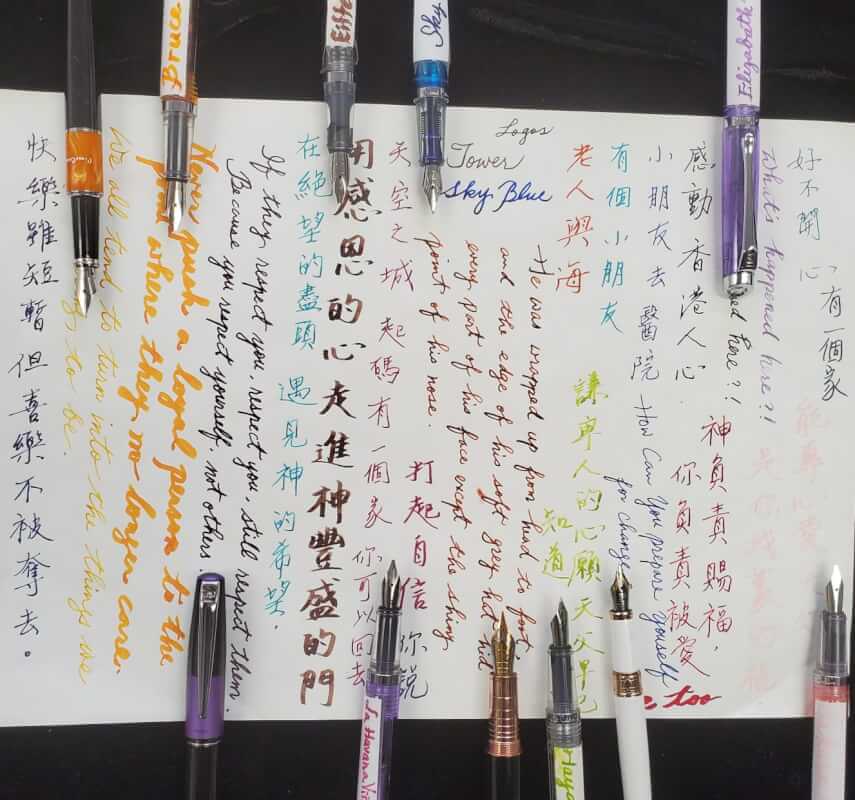 快樂雖短暫但喜樂不被奪去。
We all tend to turn into the things we
to be.
Bruce
Never push a loyal person to the
point where they no longer care.
If they respect you, respect you, still respect them.
Because you respect yourself, not others.
在絕望的盡頭 遇見神的希望.
Eiffe
用感恩的心走進神豐盛的門
天空之城 起碼有一個家 你可以回去
打起自信 你說
Sky
Logos
Tower
Sky Blue
He was wrapped up from head to foot,
and the edge of his soft grey hat hid
every part of his face except the shiny
point of his nose.
老人與海
謙卑人的心願 天父早已
知道
有個小朋友
小朋友去醫院
How Can You prepare yourself
for change
感動香港人心.
你負責被愛
神負責賜福,
too
Elizabeth
What's happened here?!
here?!
好不開心
有一個家
La Havana
Haya